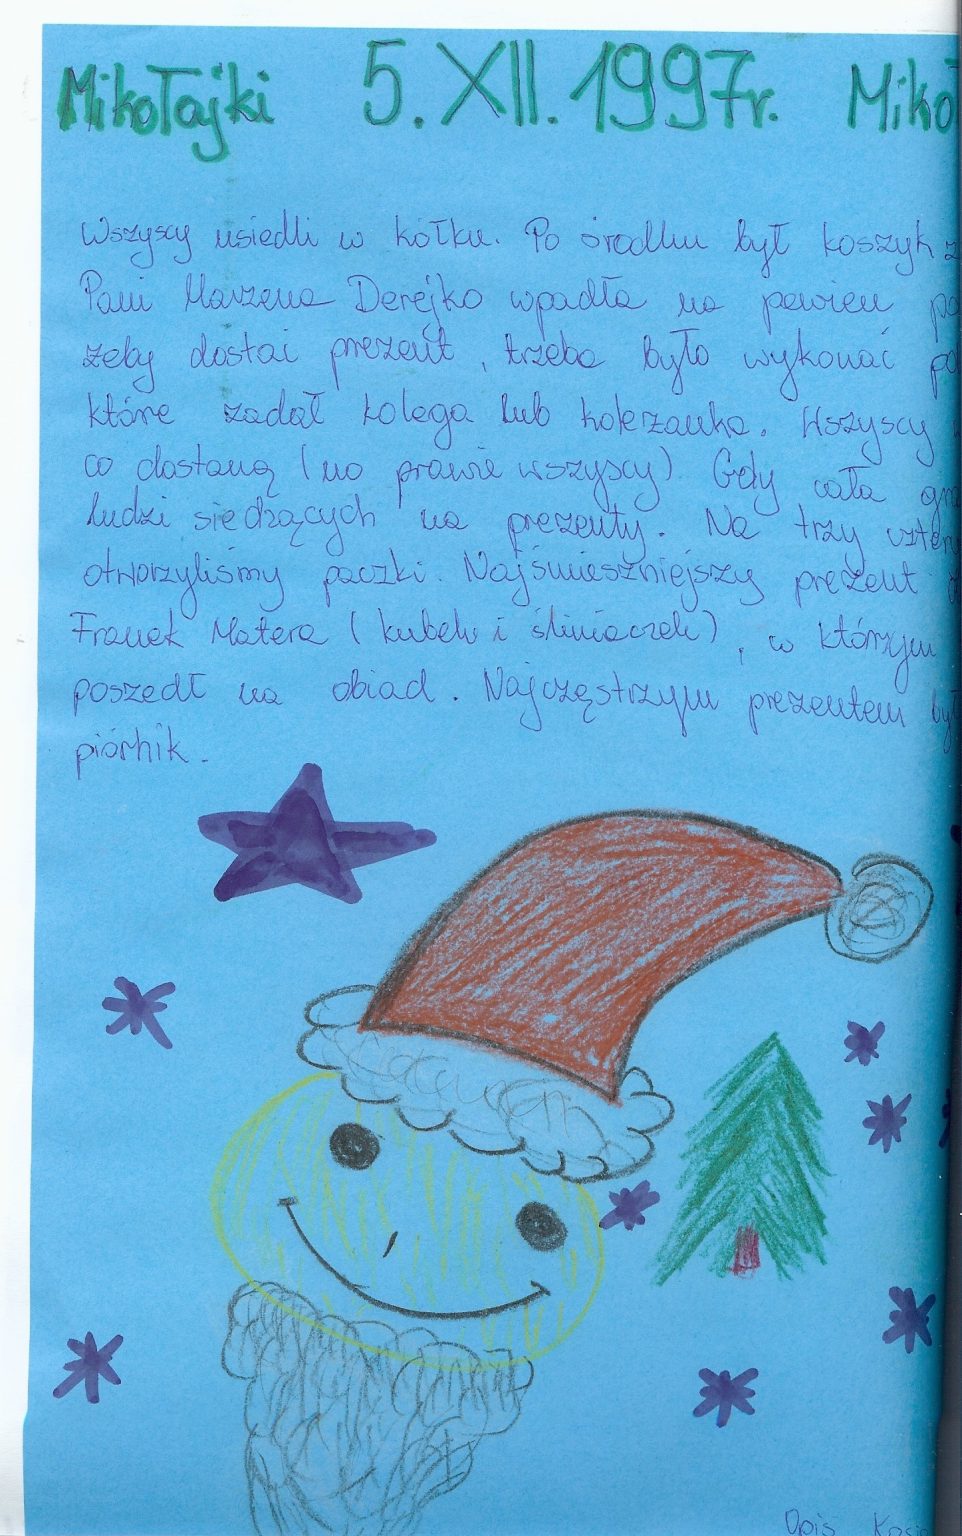 Mikołajki 5. XII. 1997r. Miko
Wszyscy usiedli w kółku. Po środku był koszyk z
Pani Marzena Derejko wpadła na pewien po
żeby dostać prezent, trzeba było wykonać po
które zadał kolega lub koleżanka. Wszyscy
co dostaną (no prawie wszyscy) Gdy cała gru
ludzi siedzących na prezenty. Na trzy czter
otworzyliśmy paczki. Najśmieszniejszy prezent
Franek Matera (kubek i śliniaczek), w którzym
poszedł na obiad. Najczęstrzym prezentem był
piórnik.
Opis Kasi